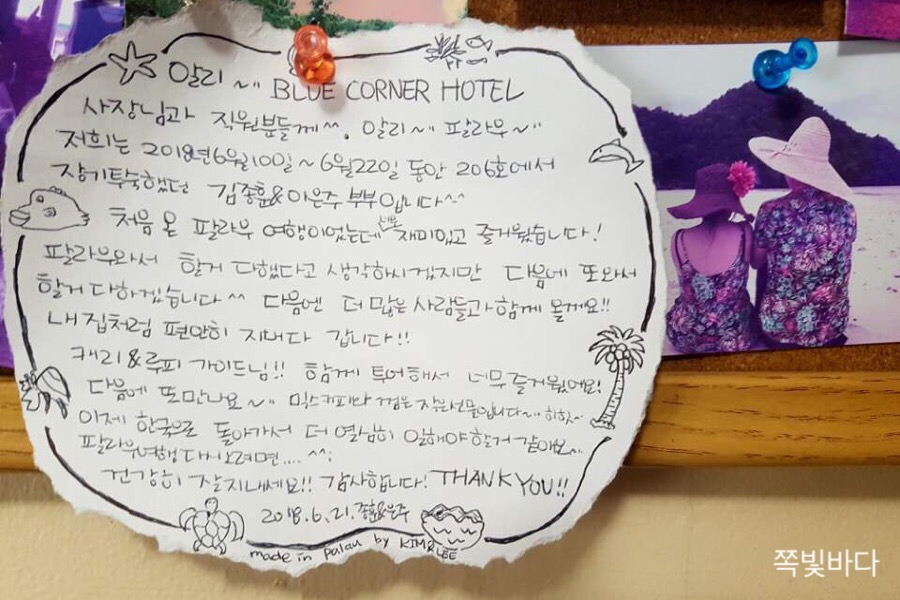 알리~" BLUE CORNER HOTEL
사장님과 직원분들께^^. 알리~" 팔라우~"
저희는 2018년6월10일~6월22일 동안 206호에서
장기투숙했던 김종훈&이은주 부부입니다^^
처음 온 팔라우 여행이었는데 너무 재미있고 즐거웠습니다!
팔라우와서 할거 다했다고 생각하시겠지만 다음에 또와서
할거 다하겠습니다^^ 다음엔 더 많은 사람들과 함께 올게요!!
내 집처럼 편안히 지내다 갑니다!!
캐리&루피 가이드님!! 함께 투어해서 너무즐거웠어요!
다음에 또만나요~" 믹스커피와 껌은 작은선물입니다~ 히힛~
이제 한국으로 돌아가서 더 열심히 일해야할거 같아요~
팔라우여행 다시오려면....^^;
건강히 잘지내세요!! 감사합니다! THANK YOU!!
2018.6.21.종훈&은주
made in palau by KIM&LEE
쪽빛바다